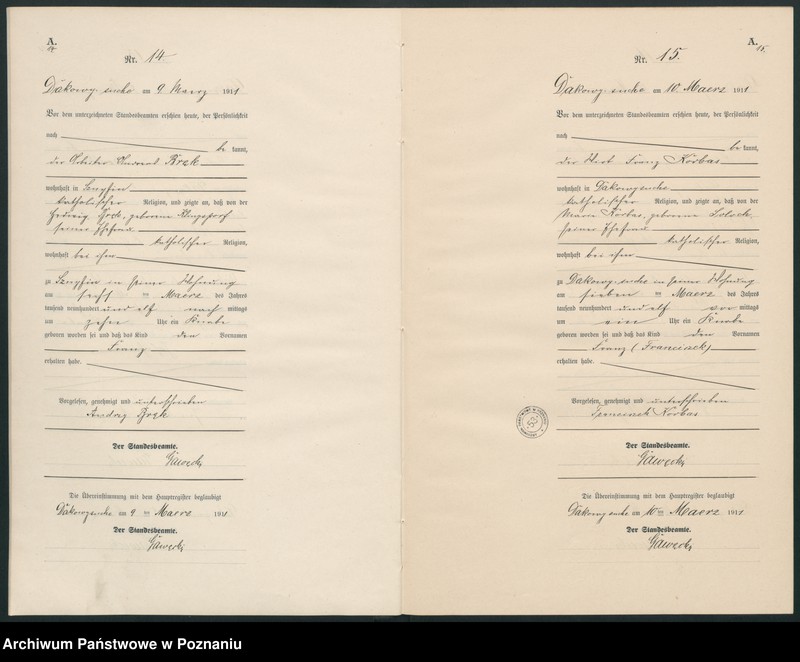 A.
14
Nr. 14
Dakowy suche am 9 Maerz 1911
Vor dem unterzeichneten Standesbeamten erschien heute, der Persönlichkeit
nach
be kannt,
der Arbeiter
wohnhaft in
katholischer Religion, und zeigte an, daß von der
Hedwig geborene
seiner Ehefrau
katholischer Religion,
wohnhaft bei ihm
zu in seiner Wohnung
am sechs ten Maerz des Jahres
tausend neunhundert und elf nach mittags
um zehn Uhr ein Knabe
geboren worden sei und daß das Kind den Vornamen
Franz
erhalten habe.
Vorgelesen, genehmigt und unterschrieben
Andrzy
Der Standesbeamte.
Gawecki
Die Übereinstimmung mit dem Hauptregister beglaubigt
Dakowysuche am 9 ten Maerz 1911
Der Standesbeamte.
Gawecki
A.
15.
Nr. 15.
Dakowy suche am 10. Maerz 1911
Vor dem unterzeichneten Standesbeamten erschien heute, der Persönlichkeit
nach
be kannt,
der Wirt Franz Korbas
wohnhaft in Dakowysuche
katholischer Religion, und zeigte an, daß von der
Maria Korbas, geborene
seiner Ehefrau
katholischer Religion,
wohnhaft bei ihm
zu Dakowy suche in seiner Wohnung
am sieben ten Maerz des Jahres
tausend neunhundert und elf vor mittags
um ein Uhr ein Knabe
geboren worden sei und daß das Kind den Vornamen
Franz (Franciszek)
erhalten habe.
Vorgelesen, genehmigt und unterschrieben
Korbas
Der Standesbeamte.
Gawecki
Die Übereinstimmung mit dem Hauptregister beglaubigt
Dakowy suche am 10 ten Maerz 1911
Der Standesbeamte.
Gawecki
Archiwum Państwowe w Poznaniu